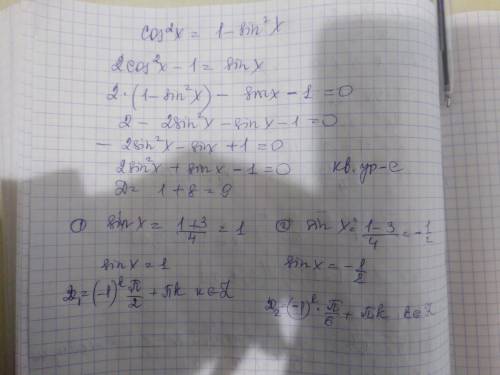 cos²x = 1 - sin²x
2cos²x - 1 = sinx
2·(1 - sin²x) - sinx - 1 = 0
2 - 2sin²x - sinx - 1 = 0
- 2sin²x - sinx + 1 = 0
2sin²x + sinx - 1 = 0 кв. ур-е
D = 1 + 8 = 9
① sinx = (1+3)/4 = 1 ② sin x = (1-3)/4 = -1/2
sinx = 1 sinx = -1/2
x₁ = (-1)^k π/2 + πk k∈Z x₂ = (-1)^k · π/6 + πk k∈Z